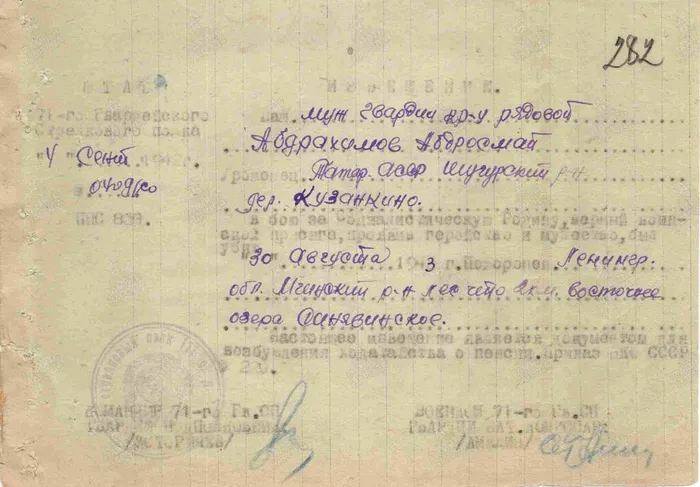 282
ШТАБ
ИЗВЕЩЕНИЕ.
71-го Гвардейского
Стрелкового полка
"4" Сент 1943г.
№ 0409/10
ППС 839.
Ваш муж гвардии кр-ц рядовой
Абдрахимов Абдросмай
Уроженец Татар. АССР Шугурский р-н
дер. Кузайкино.
в бою за Социалистическую Родину, верный воин-
ской присяге, проявив геройство и мужество, был
убит
30 Августа 1943 г. Похоронен Ленингр.
обл. Мгинский р-н лес что 2 км. восточнее
озера Синявинское.
настоящее извещение является документом для
возбуждения ходатайства о пенсии. Приказ НКО СССР
№ 220.
КОМАНДИР 71-го Гв.СП
ГВАРДИИ ПОДПОЛКОВНИК
ВОЕНКОМ 71-го Гв.СП
ГВАРДИИ БАТ. КОМИССАР